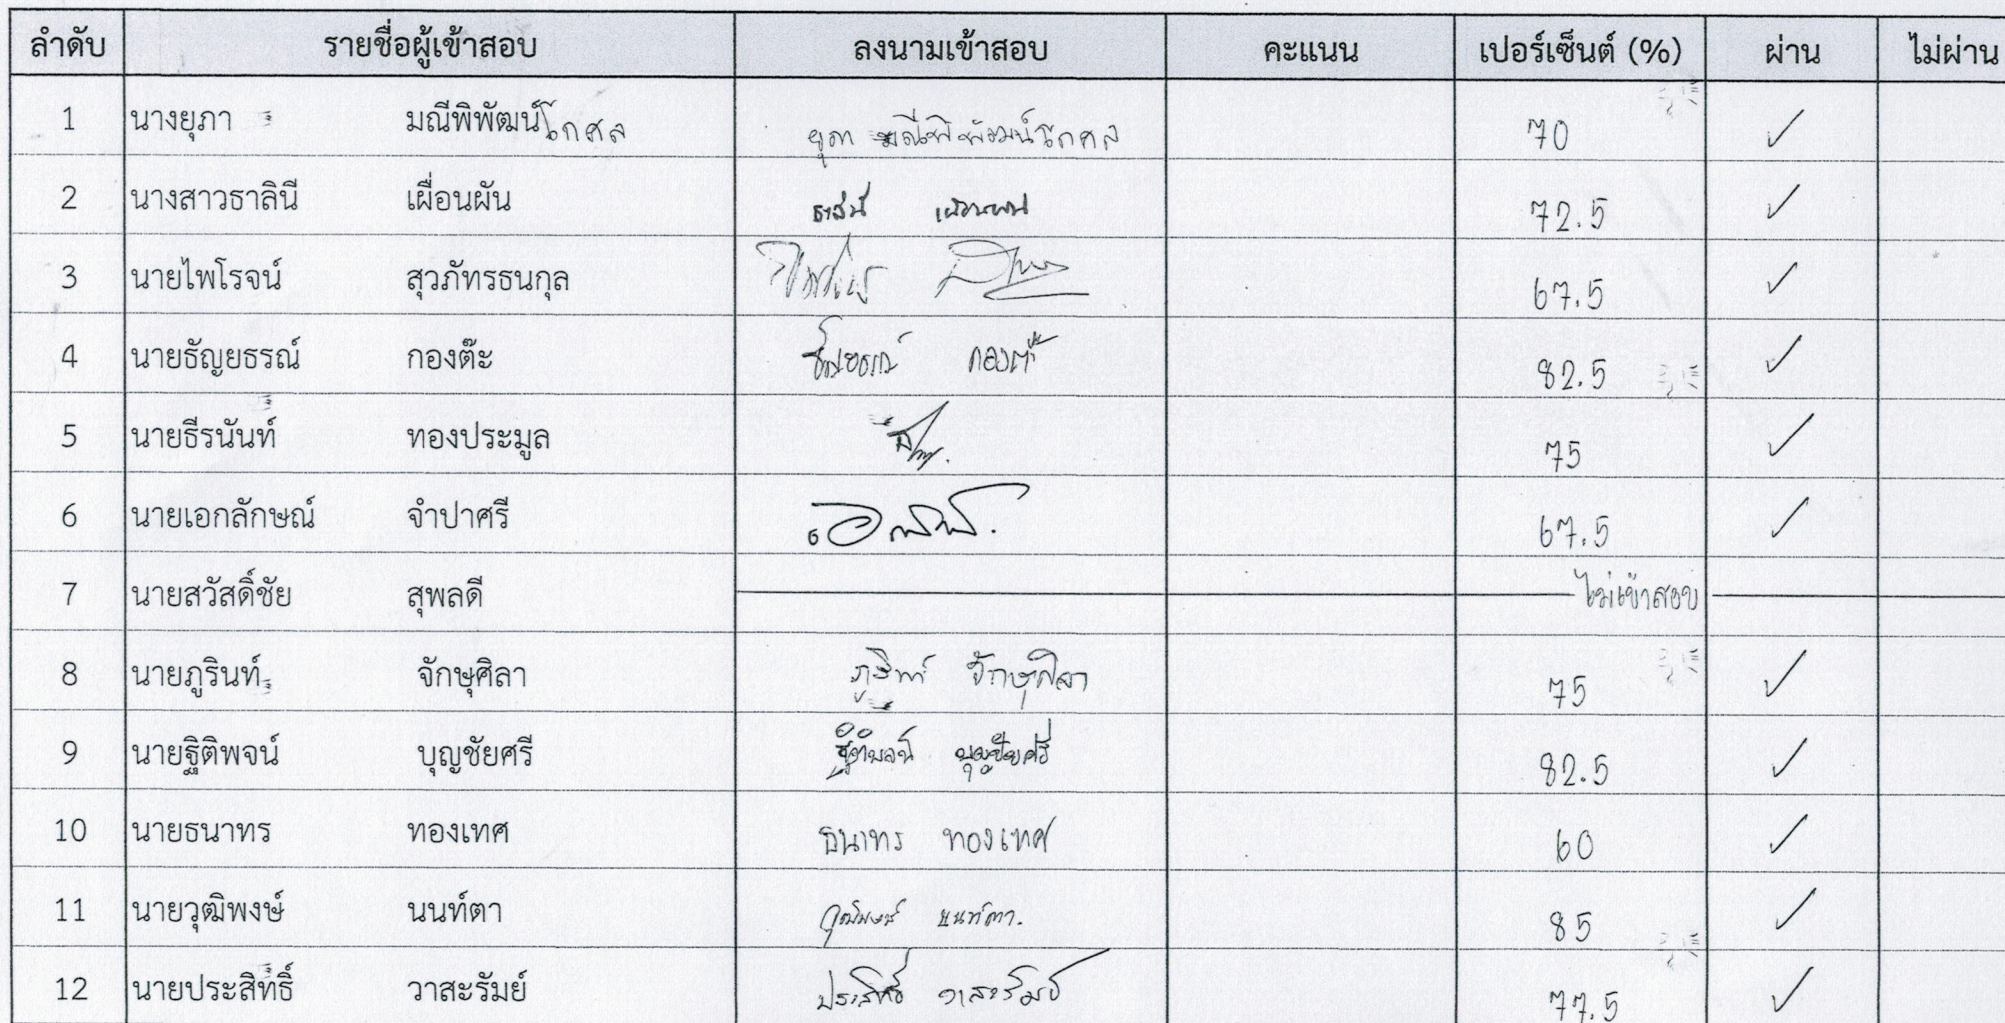 ลำดับ รายชื่อผู้เข้าสอบ ลงนามเข้าสอบ คะแนน เปอร์เซ็นต์ (%) ผ่าน ไม่ผ่าน
1 นางยุภา มณีพิพัฒน์โกศล ยุภา มณีพิพัฒน์โกศล 70 ✓
2 นางสาวธาลินี เผื่อนผัน ธาลินี เผื่อนผัน 72.5 ✓
3 นายไพโรจน์ สุวภัทรธนกุล 67.5 ✓
4 นายธัญยธรณ์ กองต๊ะ ธัญยธรณ์ กองต๊ะ 82.5 ✓
5 นายธีรนันท์ ทองประมูล 75 ✓
6 นายเอกลักษณ์ จำปาศรี 67.5 ✓
7 นายสวัสดิ์ชัย สุพลดี ไม่เข้าสอบ
8 นายภูรินท์ จักษุศิลา ภูรินท์ จักษุศิลา 75 ✓
9 นายฐิติพจน์ บุญชัยศรี ฐิติพจน์ บุญชัยศรี 82.5 ✓
10 นายธนาทร ทองเทศ ธนาทร ทองเทศ 60 ✓
11 นายวุฒิพงษ์ นนท์ตา วุฒิพงษ์ นนท์ตา. 85 ✓
12 นายประสิทธิ์ วาสะรัมย์ ประสิทธิ์ วาสะรัมย์ 77.5 ✓